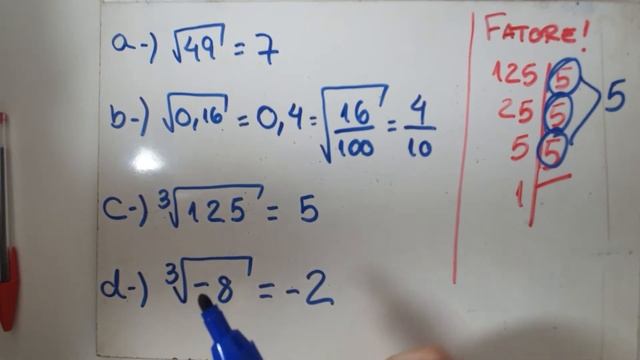 a-) √49 = 7
b-) √0,16 = 0,4 = √16/100 = 4/10
c-) ³√125 = 5
d-) ³√-8 = -2
FATORE!
125 | 5
25 | 5 > 5
5 | 5
1